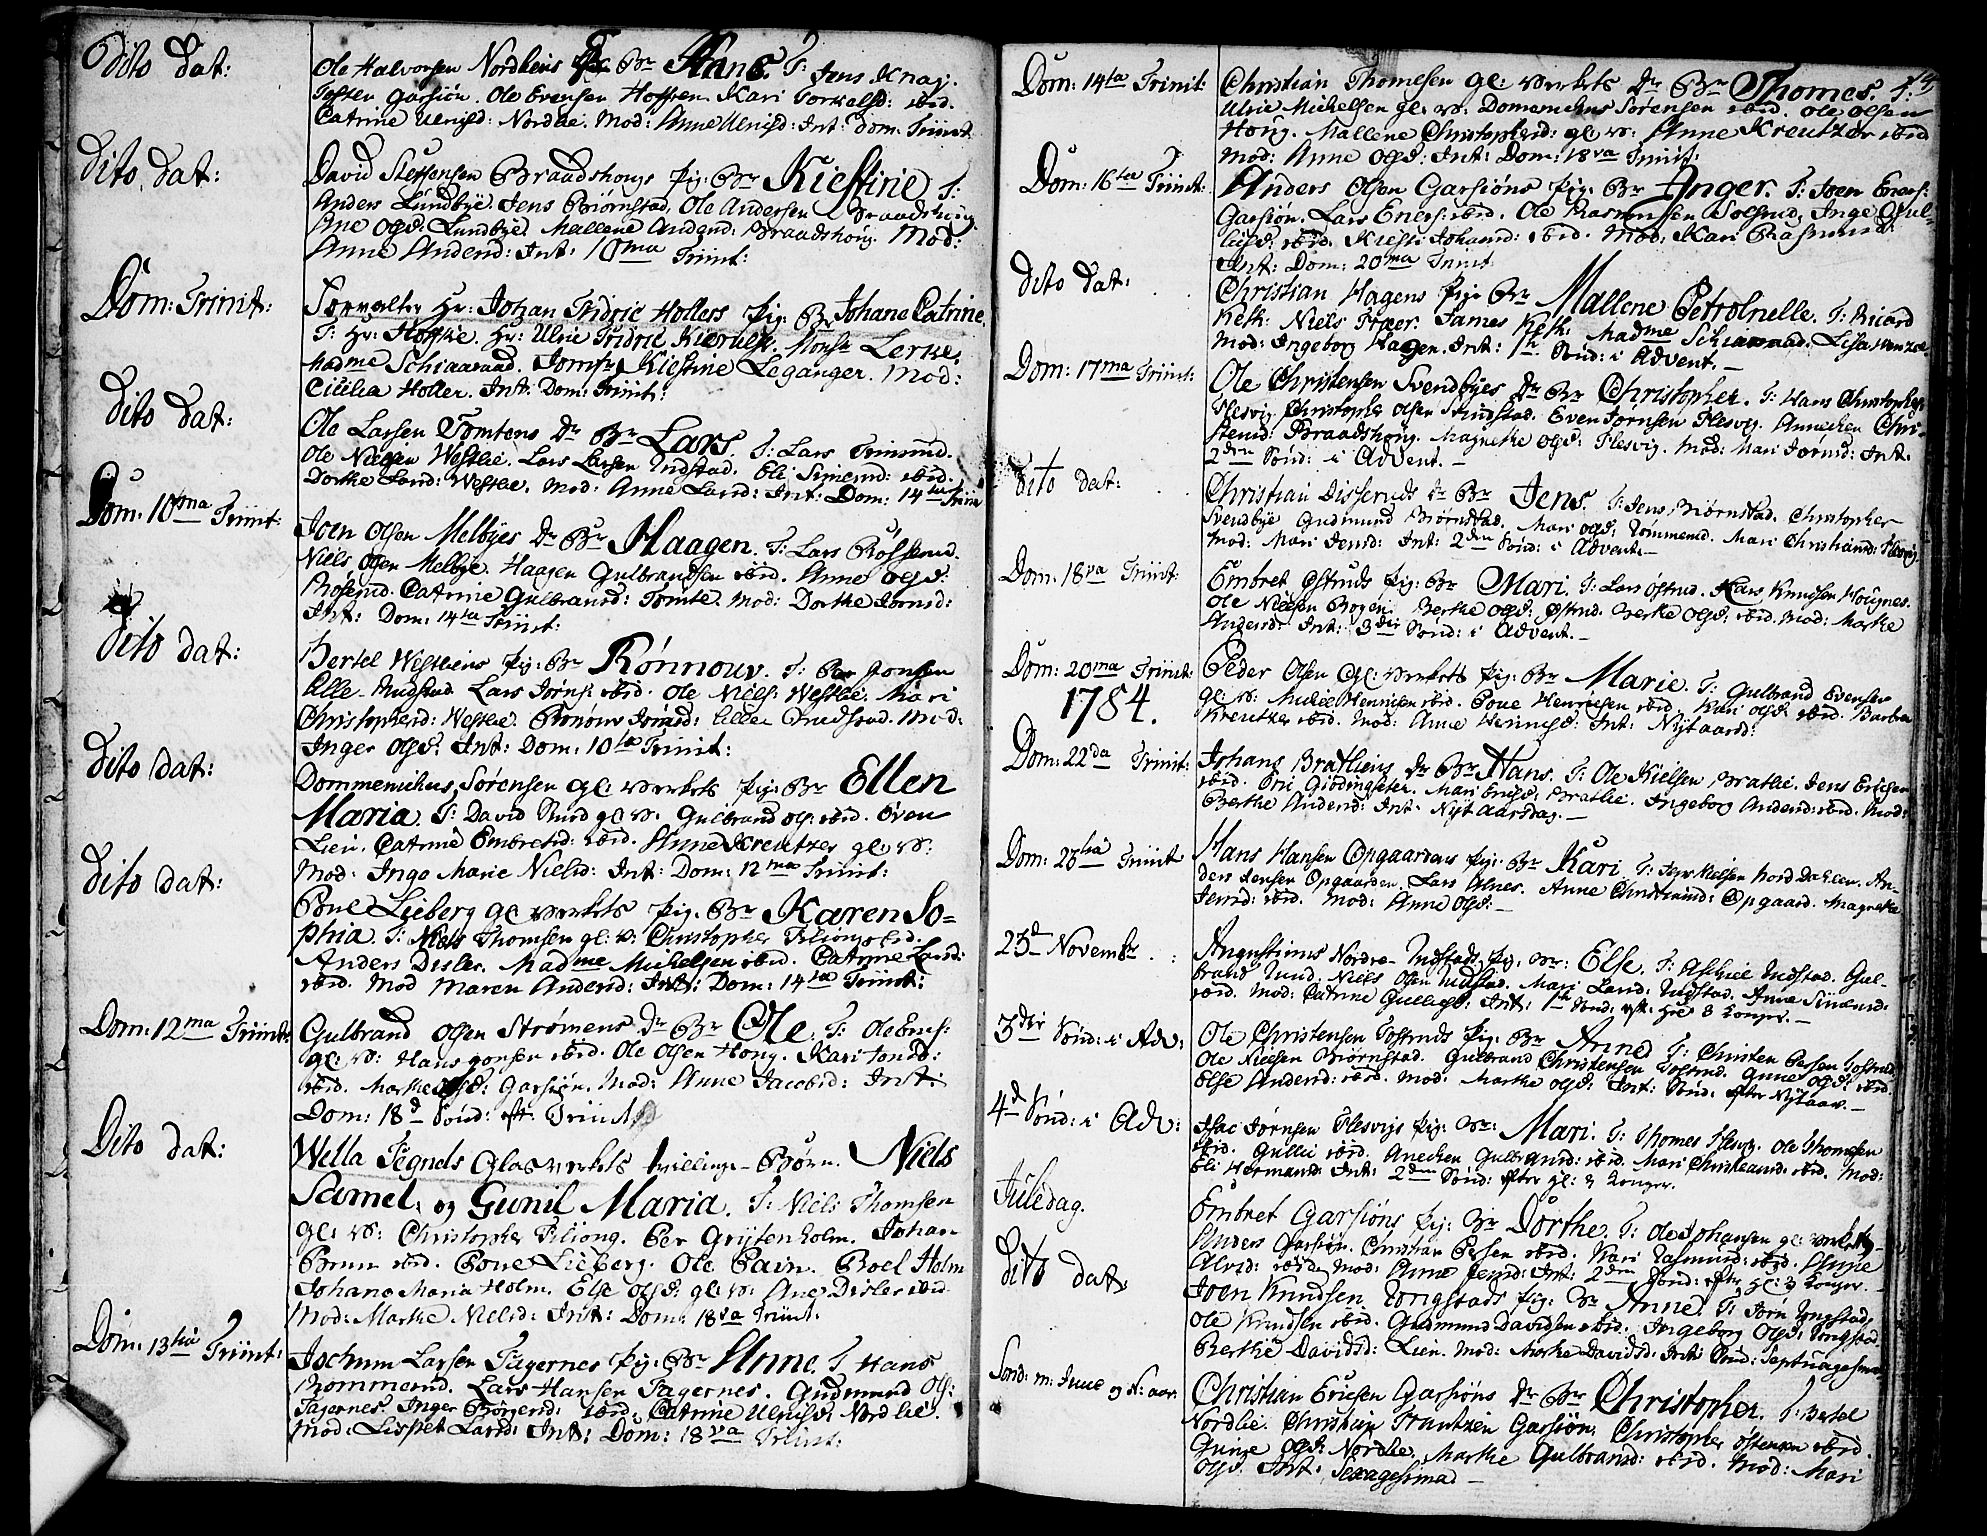 Dito dat:
Ole Halvorsen Nordliens Br Hans. T: Jens Knag.
Tosten Garsiøn. Ole Evensen Hoffren. Kari Torkelsd: ibid.
Catrine Ulrisd: Nordlie. Mod: Anne Ulrisd: Int: Dom: Triint
Dito dat:
David Steffensen Braadshougs Pig: Br Kiestirie T:
Anders Lundbye. Jens Biørnstad. Ole Andersen Braadshoug
Ane Olsd: Lundbye. Mallene Andersd: Braadshoug. Mod:
Anne Andersd: Int: 10ma Triint:
Dom: Triint:
Forvalter Hr: Johan Fridric Hollers Pig: Br Johane Catrine.
T: Hr: Hoffke. Hr: Ulric Fridric Kierulf. Monsr Lerke.
Madme Schiaaraad. Jomfr Kiestine Leganger. Mod:
Cicilia Holler. Int: Dom: Triint:
Dito dat:
Ole Larsen Tomtens Dr Br Lars. T: Lars Simensd.
Ole Nielsen Westlie. Lars Larsen Indstad. Eli Simensd: ibid:
Dorthe Larsd: Westlie. Mod: Anne Larsd: Int: Dom: 14ta Triint
Dom: 10ma Triint:
Joen Olsen Melbyes Dr Br Haagen. T: Lars Røsserud.
Niels Olsen Melbye. Haagen Gulbrandsen ibid. Anne Olsd:
Røserud. Catrine Gulbransd: Tomte. Mod: Dorthe Joensd:
Int: Dom: 14ta Triint:
Dito dat:
Bertel Westliens Pig: Br Rønnouv. T: Per Jonsen
Alle. Indstad. Lars Jørns: ibid. Ole Niels: Westlie. Mari
Christophersd: Westlie. Rønnou Joensd: Mod:
Inger Olsd: Int: Dom: 10ta Triint:
Dito dat:
Dommenicus Sørensen Gl: værkets Pig: Br Ellen
Maria. T: David Stuvd gl: v: Gulbrand Ols: ibid. Even
Lien. Catrine Embretsd: ibid. Anne Kreutzer gl: v:
Mod: Inge Marie Nielsd: Int: Dom: 12ma Triint:
Dito dat:
Povel Lieberg Gl: værkets Pig: Br Karen So=
phia. T: Niels Thomsen gl: v: Christopher Fliong ibid.
Anders Disler. Madme Michelsen ibid. Catrine Larsd:
ibid. Mod Maren Andersd: Int: Dom: 14ta Triint:
Dom: 12ma Triint:
Gulbrand Olsen Strømens Dr Br Ole. T: Ole Eners:
gl: v: Hans Jonsen ibid. Ole Olsen Houg. Kari Jonsd:
ibid. Marthe Olsd: Garsiøn. Mod: Anne Jacobsd: Int:
Dom: 18d Sønd: eft: Triint:
Dito dat:
Wella Tegnels Glasværkets tvillinge-Børn. Niels
Samel, og Gunil Maria. T: Niels Thomsen
gl: v: Christopher Fliong. Per Grytenholm. Johan
Brun ibid. Povel Lieberg. Ole Pavin. Boel Holm
Johana Maria Holm. Else Olsd: gl: v: Ane Disler ibid.
Mod: Marthe Nielsd: Int: Dom: 18va Triint.
Dom: 13tia Triint:
Jochum Larsen Fagernes Pig: Br Anne. T: Hans
Brommerud. Lars Hansen Fagernes. Gudmund Ols:
Fagernes. Inger Børgersd: ibid. Catrine Ulrisd: Nordlie.
Mod: Lispet Larsd: Int: Dom: 18va Triint:
Dom: 14ta Triint:
Christian Thomesen gl: værkets Dr Br Thomes. T:
Ulric Michelsen gl: v: Domenicus Sørensen ibid. Ole Olsen
Houg. Mallene Christophersd: gl: v: Anne Kreutzer ibid
Mod: Anne Olsd: Int: Dom: 18va Triint:
Dom: 16ta Triint:
Anders Olsen Garsiøns Pig: Br Inger. T: Joen Eners:
Garsiøn. Lars Eners: ibid. Ole Rasmusen Solerud. Inge Gul=
lisd: ibid. Kiesti Johansd: ibid. Mod: Kari Rasmusd:
Int: Dom: 20ma Triint
Dito dat:
Christian Hagens Pig: Br Mallene Petrolnelle. T: Ricard
Keth: Niels Præer. James Keth: Madme Schiaaraad. Lisa Wenzel
Mod: Ingeborg Hagen. Int: 1te Sønd: i Advent.—
Dom: 17ma Triint:
Ole Christensen Svendbyes Dr Br Christopher. T: Hans Christopher
Flesvig. Christopher Olsen Frudstad. Even Jørnsen Flesvig. Annechen Chri-
stensd: Braadshoug. Magnethe Olsd: Flesvig. Mod: Mari Jørnsd: Int:
2den Sønd: i Advent.—
Dito dat:
Christian Disseruds Dr Br Jens. T: Jens Biørnstad. Christopher
Svendbye. Gudmund Biørnstad. Mari Olsd: Tømmerud. Mari Christiansd: Flesvig.
Mod: Mari Jensd: Int: 2den Sønd: i Advent.—
Dom: 18va Triint:
Embret Østruds Pig: Br Mari. T: Lars Østrud. Hans Knudsen Hougnes.
Ole Nielsen Bogen. Berthe Olsd: Østrud. Berthe Olsd: ibid. Mod: Marthe
Andersd: Int: 3die Sønd: i Advent.—
Dom: 20ma Triint:
1784.
Peder Olsen Gl: værkets Pig: Br Marie. T: Gulbrand Evensen
gl: v: Michel Henricsen ibid. Povel Henricsen ibid. Kari Olsd: ibid. Barbra
Kreutzer ibid. Mod: Anne Henricsd: Int: Nytaarsd:
Dom: 22da Triint:
Johans Bratliens Dr Br Hans. T: Ole Kielsen Bratlie. Jens Ericsen
ibid. Eric Gibdingseter. Mari Ericsd: Bratlie. Ingeborg Andersd: ibid. Mod:
Berthe Andersd: Int: Nytaarsdag.—
Dom: 23tia Triint
Hans Hansen Opgaardens Pig: Br Kari. T: Jepr Nielsen Nord Dahlen. An-
ders Jensen Opgaarden. Lars Alnes. Anne Christiansd: Opgaard. Magnethe
Jensd: ibid. Mod: Anne Olsd:—
23d Novembr:
Augustinus Nordre-Indstads Pig: Br: Else. T: Aschiel Indstad. Gul-
brand Lund. Niels Olsen Indstad. Mari Larsd: Indstad. Anne Simensd:
ibid. Mod: Catrine Gullicsd: Int: 1te Sønd: eft: Hel: 3 Konger.—
3die Sønd: i Adv:
Ole Christensen Tostruds Pig: Br Anne. T: Christen Persen Tostrud
Ole Nielsen Biørnstad. Gulbrand Christensen Tostrud. Gune Olsd: ibid.
Else Andersd: ibid. Mod: Marthe Olsd: Int: Sønd: efter Nytaar.—
4d Sønd: i Adv:
Isac Jørnsen Flesvigs Pig: Br: Mari. T: Thomes Flesvig. Ole Thomesen
ibid. Gullic ibid. Anechen Gulbransd: ibid. Mari Christiansd: ibid. Mod:
Eli Hermansd: Int: 2den Sønd: efter gl: 3 Konger.
Juledag.
Embret Garsiøns Pig: Br Dorthe. T: Ole Johansen gl: værket.
Anders Garsiøn. Christian Persen ibid. Kari Rasmusd: ibid. Anne
Alvsd: ibid. Mod: Anne Jensd: Int: 2den Sønd: efter Hl: 3 Konger.—
Dito dat:
Joen Knudsen Ungstads Pig: Br Anne. T: Jørn Ungstad.
Ole Knudsen ibid. Gudmund Davidsen ibid. Ingeborg Olsd: Ungstad.
Berthe Davidsd: Lien. Mod: Marthe Davidsd: Int: Sønd: Septuagesima
Sønd: m: Juul og N: aar:
Christian Ericsen Garsiøns Dr Br Christopher. T: Bertel
Nordlie. Christian Frantzen Garsiøn. Christopher Østensen ibid.
Gunse Olsd: Nordlie. Marthe Gulbransd: ibid. Mod: Mari
Olsd: Int: Sexagesima—